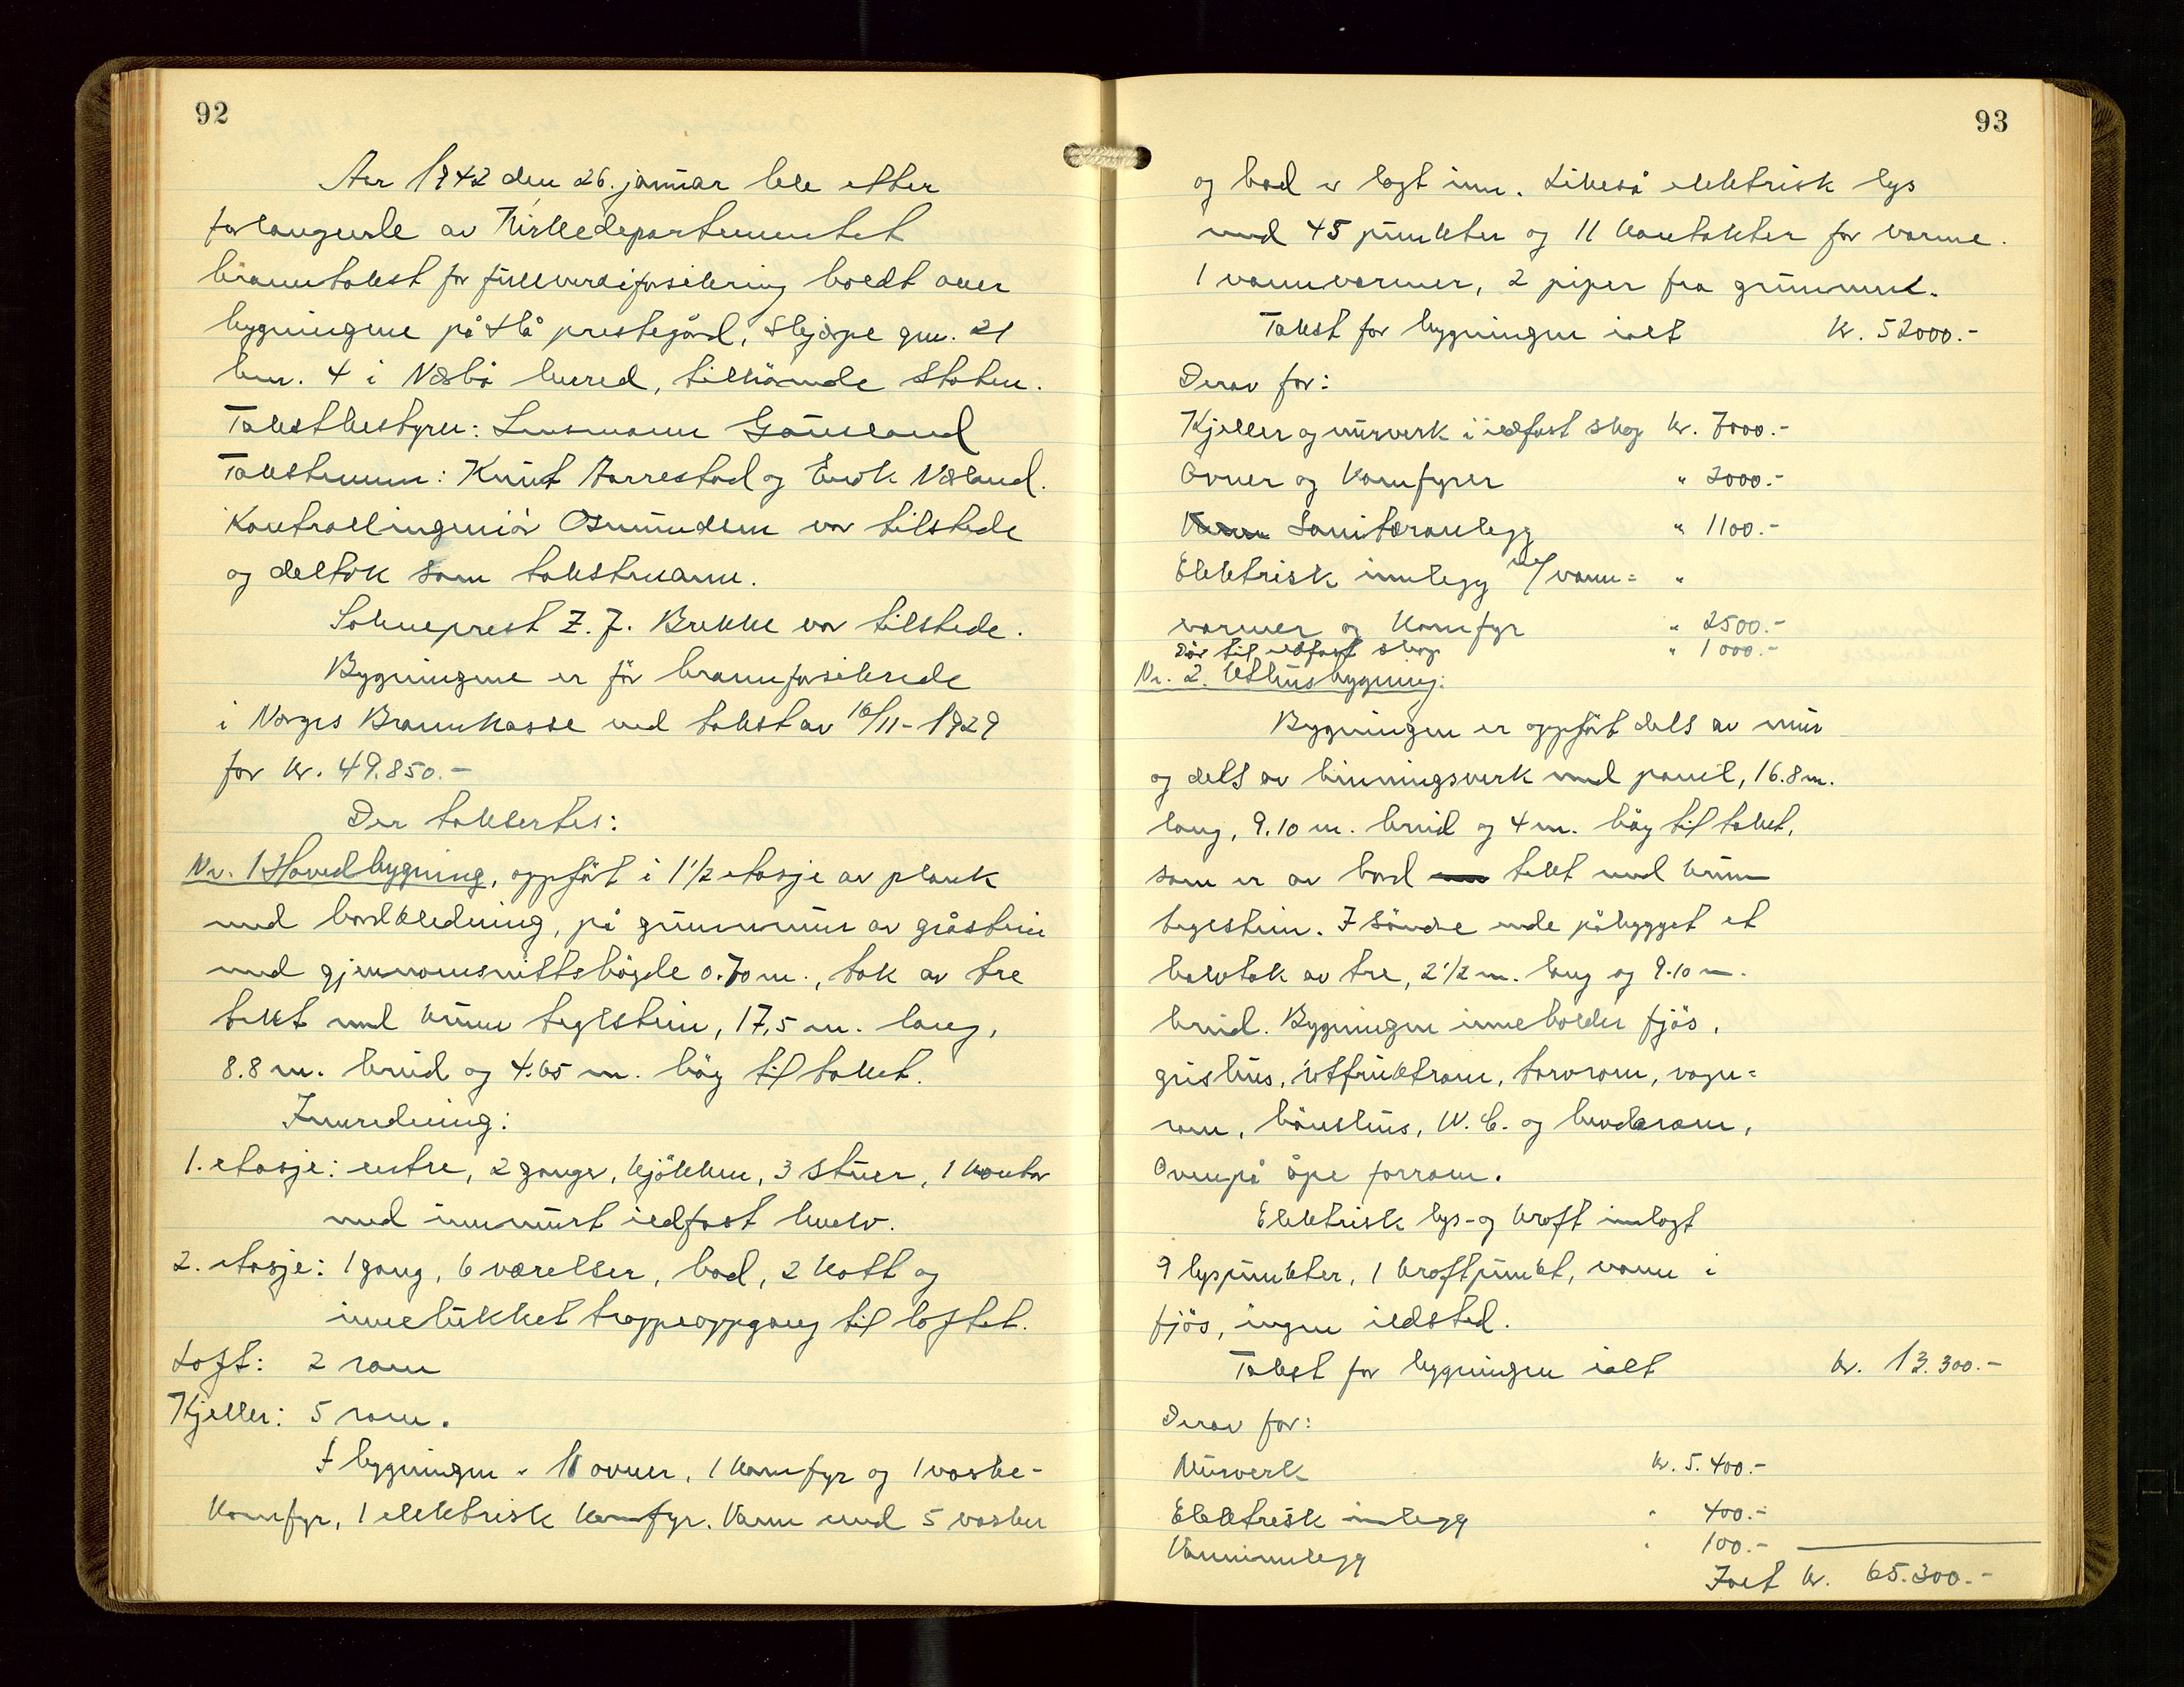 92
Aar 1942 den 26. januar ble etter
forlangende av Kirkedepartementet
branntakst for fullverdiforsikring holdt over
bygningene på Hå prestegård, Skjærpe gnr. 21
bnr. 4 i Nærbø herred, tilhörende Staten.
Takstbestyrer: Lensmann Gausland
Takstmenn: Knut Aarrestad og Enok Næland.
Kontrollingeniör Osmundsen var tilstede
og deltok som takstmann.
Sokneprest Z. J. Brekke var tilstede.
Bygningene er för brannforsikrede
i Norges Brannkasse ved takst av 16/11-1929
for kr. 49.850.-
Der taksertes:
Nr. 1 Hovedbygning, oppfört i 1 1/2 etasje av plank
med bordkledning, på grunnmur av gråstein
med gjennomsnittshögde 0.70 m., tak av tre
tekt med krum teglstein, 17,5 m. lang,
8.8 m. breid og 4.65 m. høg til taket.
Innredning:
1. etasje: entre, 2 ganger, kjökken, 3 stuer, 1 kontor
med innmurt ildfast hvelv.
2. etasje: 1 gang, 6 værelser, bad, 2 kott og
innelukket trappeoppgang til loftet.
Loft: 2 rom
Kjeller: 5 rom.
I bygningen er 10 ovner, 1 komfyr og 1 vaske-
komfyr, 1 elektrisk komfyr. Vann med 5 vasker
93
og bad er lagt inn. Likeså elektrisk lys
med 45 punkter og 11 kontakter for varme.
1 vannvarmer, 2 piper fra grunnen.
Takst for bygningen ialt kr. 52000.-
Derav for:
Kjeller og murverk i ildfast skap kr. 7000.-
Ovner og komfyrer " 2000.-
Sanitæranlegg " 1100.-
Elektrisk innlegg m/vann= "
varmer og komfyr " 2500.-
Dör til ildfast skap " 1000.-
Nr. 2. Uthusbygning:
Bygningen er oppfört dels av mur
og dels av binningsverk med panel, 16.8 m.
lang, 9.10 m. breid og 4 m. høg til taket,
som er av bord tekt med krum
teglstein. I söndre ende påbygget et
halvtak av tre, 2 1/2 m. lang og 9.10 m.
breid. Bygningen inneholder fjös,
grishus, rotfruktrom, torvrom, vogn=
rom, hönshus, W.C. og boderom,
Ovenpå åpe forrom.
Elektrisk lys- og kraft innlagt
9 lyspunkter, 1 kraftpunkt, vann i
fjös, ingen ildsted.
Takst for bygningen ialt kr. 13.300.-
Derav for:
Murverk kr. 5.400.-
Elektrisk innlegg " 400.-
Vanninnlegg " 100.-
Ialt kr. 65.300.-